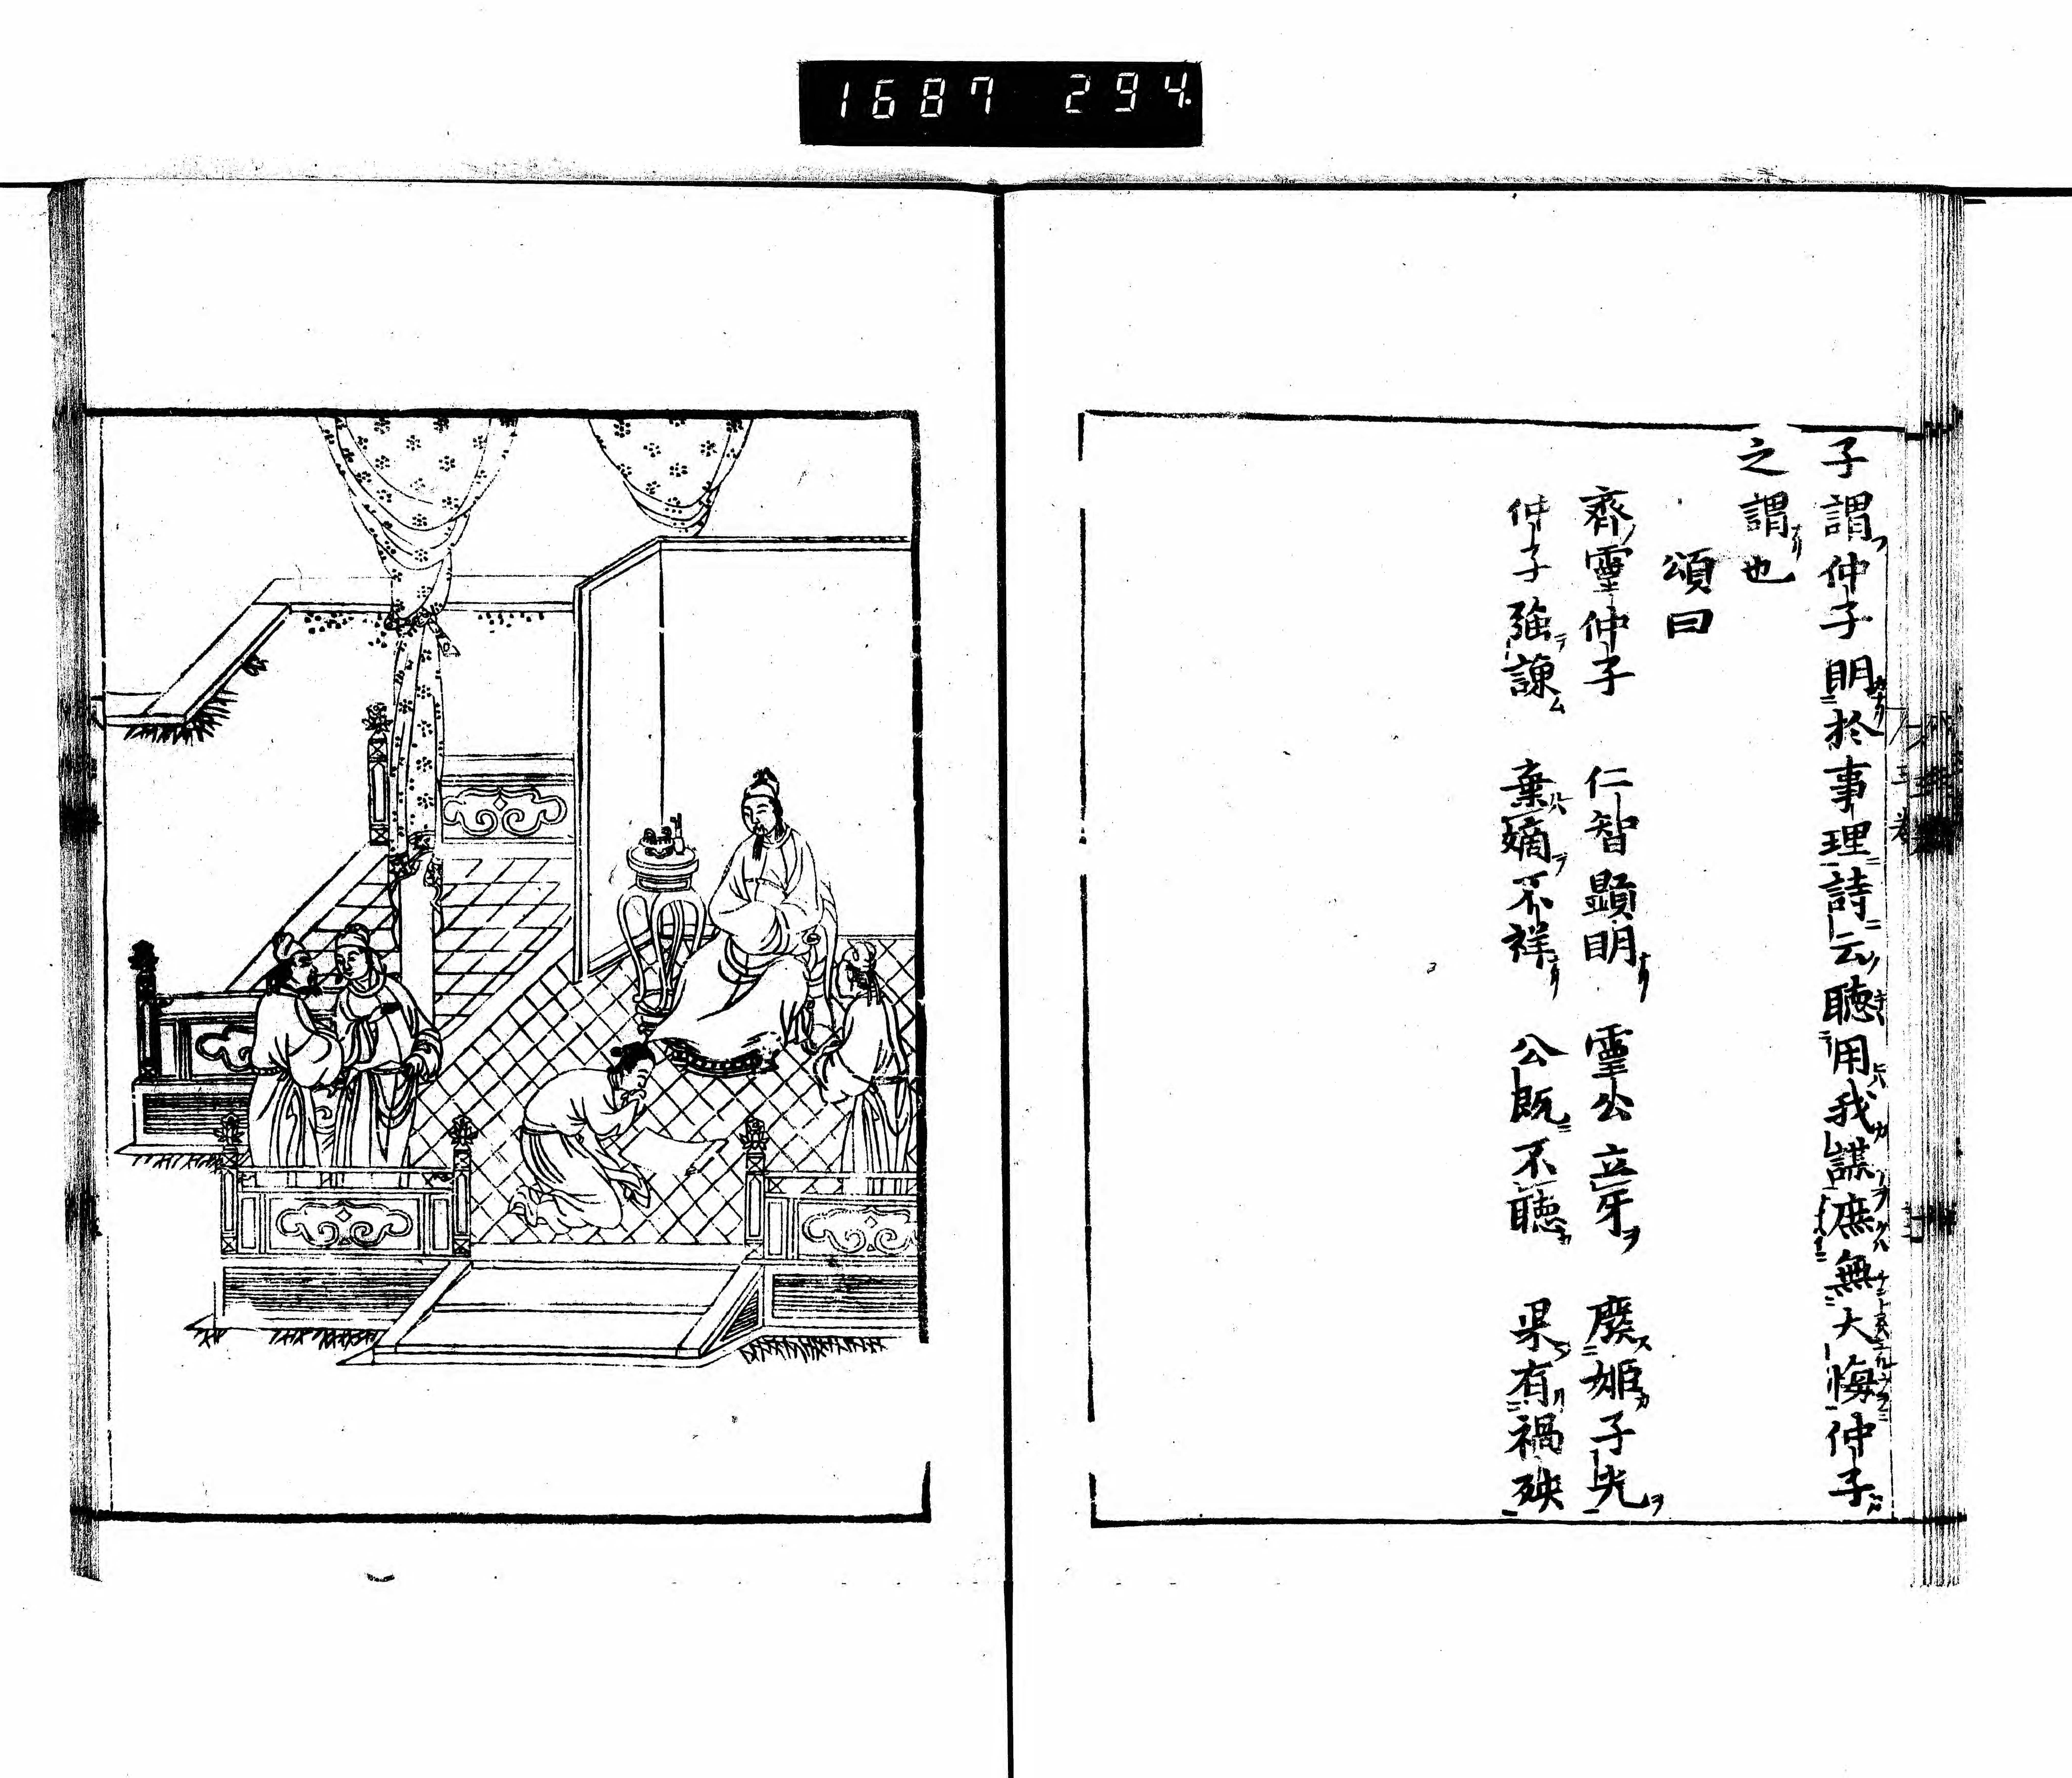 1687 294.
子謂仲子明於事理詩云聽用我謀庶無大悔仲子
之謂也
頌曰
齊靈仲子 仁智顯明 靈公立牙 廢姬子光
仲子強諫 棄嫡不祥 公既不聽 果有禍殃